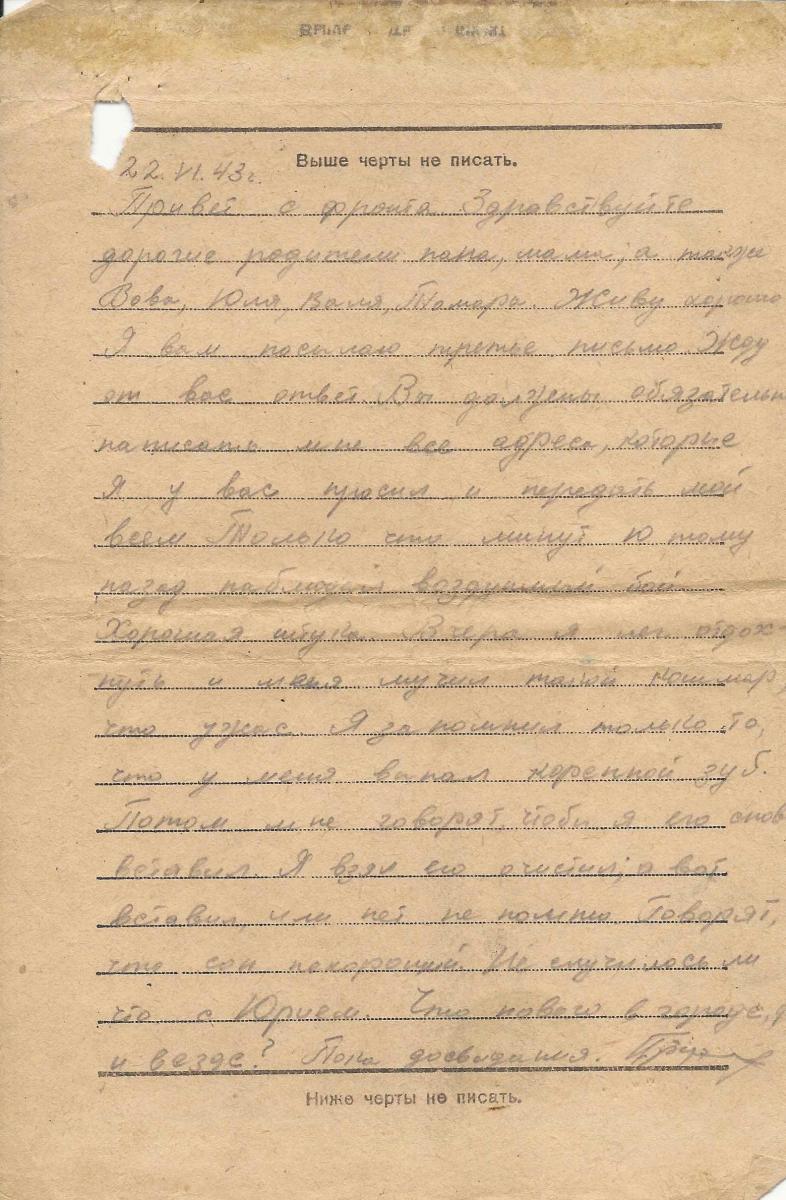 Выше черты не писать.
22.VI.43г.
Привет с фронта. Здравствуйте
дорогие родители папа, мама, а также
Вова, Юля, Валя, Тамара. Живу хорошо
Я вам посылаю третье письмо Жду
от вас ответ Вы должены обязательн
написать мне все адреса, которые
Я у вас просил и передать мой
всем Только что минут 10 тому
назад наблюдал воздушный бой.
Хорошая штука. Вчера я лег отдох-
нуть и меня мучил такой кошмар,
что ужас. Я запомнил только то,
что у меня выпал коренной зуб.
Потом мне говорят, чтобы я его снов
вставил. Я взял его очистил, а вот
вставил, или нет не помню. Говорят,
что сон нехороший Не случилось ли
что с Юрием. Что нового в городе,
и везде? Пока досвидания.
Ниже черты не писать.